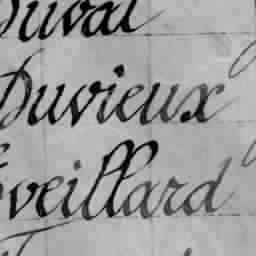 Duval
Duvieux
Éveillard